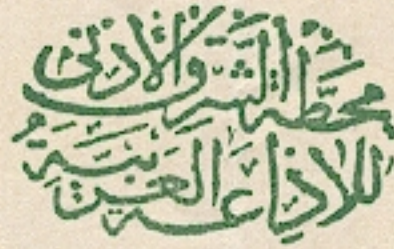 محطة الشرق الأدنى
للإذاعة العربية